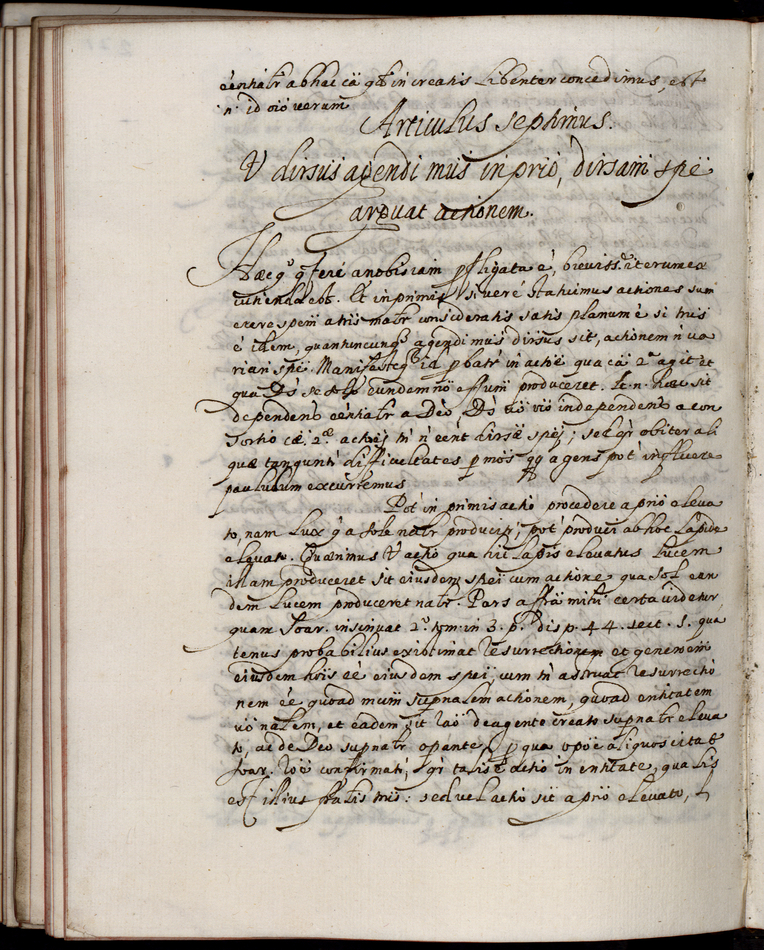 eentiatr ab hac cã qt in creatis libenter concedimus, est
n. id oiõ verum
Articulus septimus.
V dirsus agendi mũs in prio, dirsam spẽ
arguat actionem.
Hæc q. fere a nobis iam pfligata é, breviss.e iterum ex
cutienda est. Et in primis, si vere statuimus actiones sum
ere speim a tris matr consideratis satis planum é si trus
é idem, quantuncunq agendi mũs dirsus sit, actionem ñ va
riari spẽ. Manifesteq id pbatr in actiẽ qua cã 2a agit et
qua Ds se solo eundem nõ effum produceret. Ite.n. hæc sit
dependens eentiatr a Deo, Ds vo vio independens a con
sortio cæ. 2æ actiẽs tn ñ eent dirsæ spẽi; sed qr obiter ali
quæ tanguntr difficultates p mõs qq agens pot influere
paululum excurremus
Pot in primis actio procedere a prio eleva
to, nam lux q a sole natr producitr, pot produci ab hoc lapide
elevato. Quærimus V actio qua hic lapis elevatus lucem
illam produceret sit eiusdem spẽi cum actione qua sol ean
dem lucem produceret natr. Pars affra mihi certa videtur
quam Soar. insinuat 2o tom. in 3. p. disp. 44. sect. 5. qua
tenus probabilius existimat resurrectionem et generoem
eiusdem hois eé eiusdem spẽi, cum tn asserat resurrectio
nem eé quoad mum supnalem actionem, quoad entitatem
vo nalem, et eadem sit rao de agente creato supnatr eleva
to, ac de Deo supnatr operante, p qua opõe aliquos citat
Soar. roẽ confirmatr, qr talis é actio in entitate, qualis
est illius fralis trus: sed vel actio sit a prio elevato, l